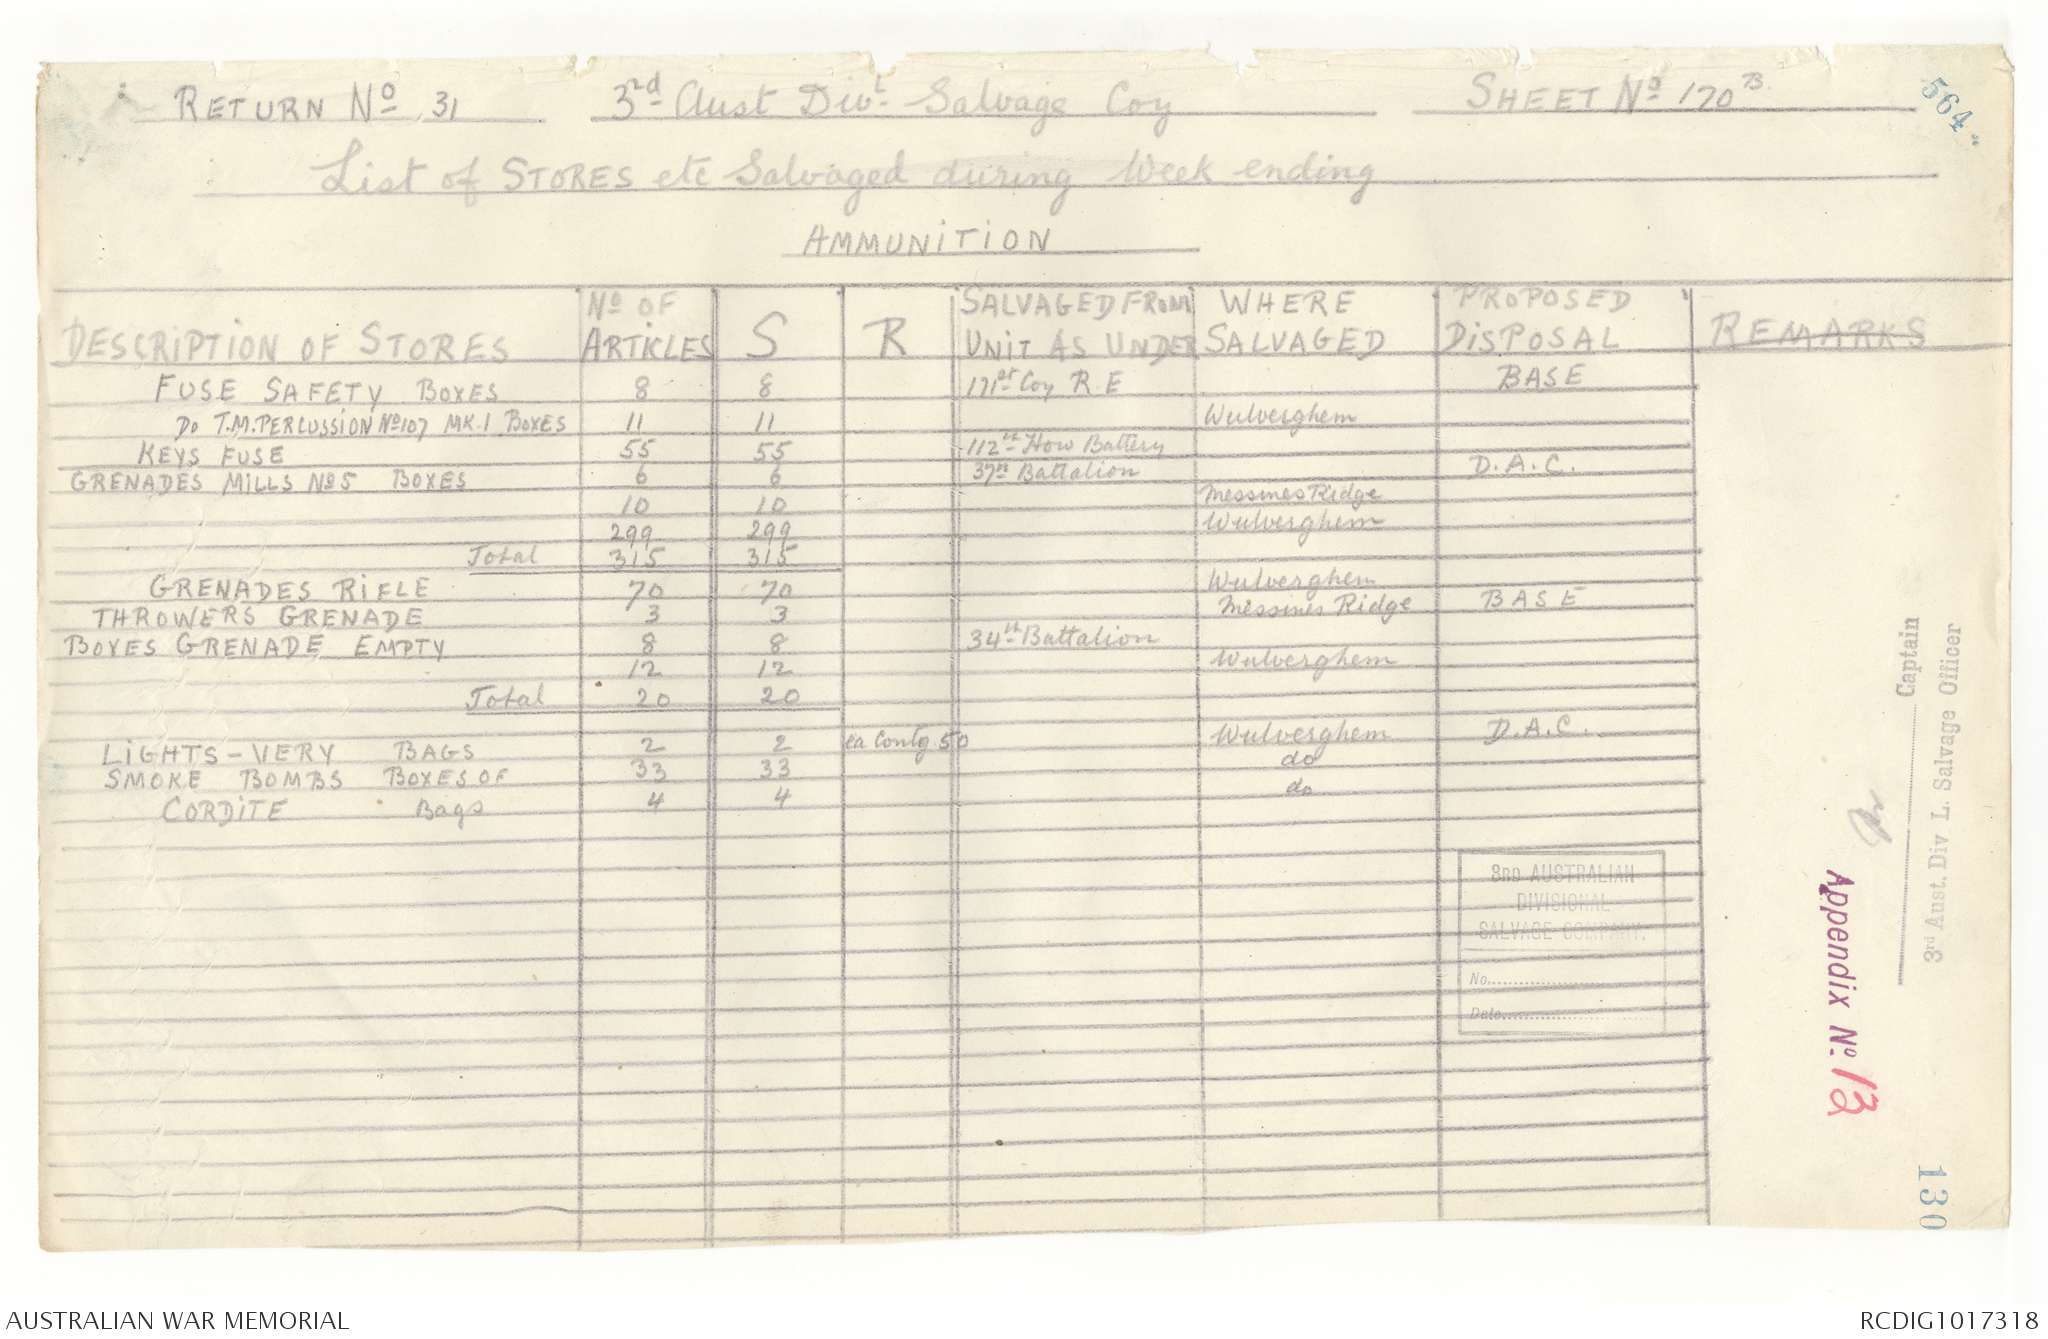 RETURN No 31 3rd Aust Divl Salvage Coy SHEET No 170B 564.
List of STORES etc Salvaged during Week ending
AMMUNITION
DESCRIPTION OF STORES No OF ARTICLES S R SALVAGED FROM UNIT AS UNDER WHERE SALVAGED PROPOSED DISPOSAL REMARKS
FUSE SAFETY BOXES 8 8 171st Coy R.E BASE
Do T.M. PERCUSSION No 107 MK.1 BOXES 11 11 Wulverghem
KEYS FUSE 55 55 112th How Battery
GRENADES MILLS No 5 BOXES 6 6 37th Battalion D.A.C.
10 10 Messines Ridge
299 299 Wulverghem
Total 315 315
GRENADES RIFLE 70 70 Wulverghem
THROWERS GRENADE 3 3 Messines Ridge BASE
BOXES GRENADE EMPTY 8 8 34th Battalion
12 12 Wulverghem
Total 20 20
LIGHTS - VERY BAGS 2 2 ea Contg 50 Wulverghem D.A.C.
SMOKE BOMBS BOXES OF 33 33 do
CORDITE Bags 4 4 do
3RD AUSTRALIAN
DIVISIONAL
SALVAGE COMPANY.
No.
Date
Captain
3rd Aust. Div L. Salvage Officer
Appendix No. 13
130
AUSTRALIAN WAR MEMORIAL RCDIG1017318